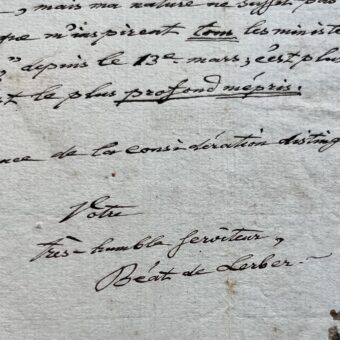 , mais ma nature ne suffit pas
que m'inspirent tous les ministe
" depuis le 13e. mars; c'est plus
st le plus profond mépris.
nce de la considération disting
Votre
très-humble serviteur,
Béat de Lerber.